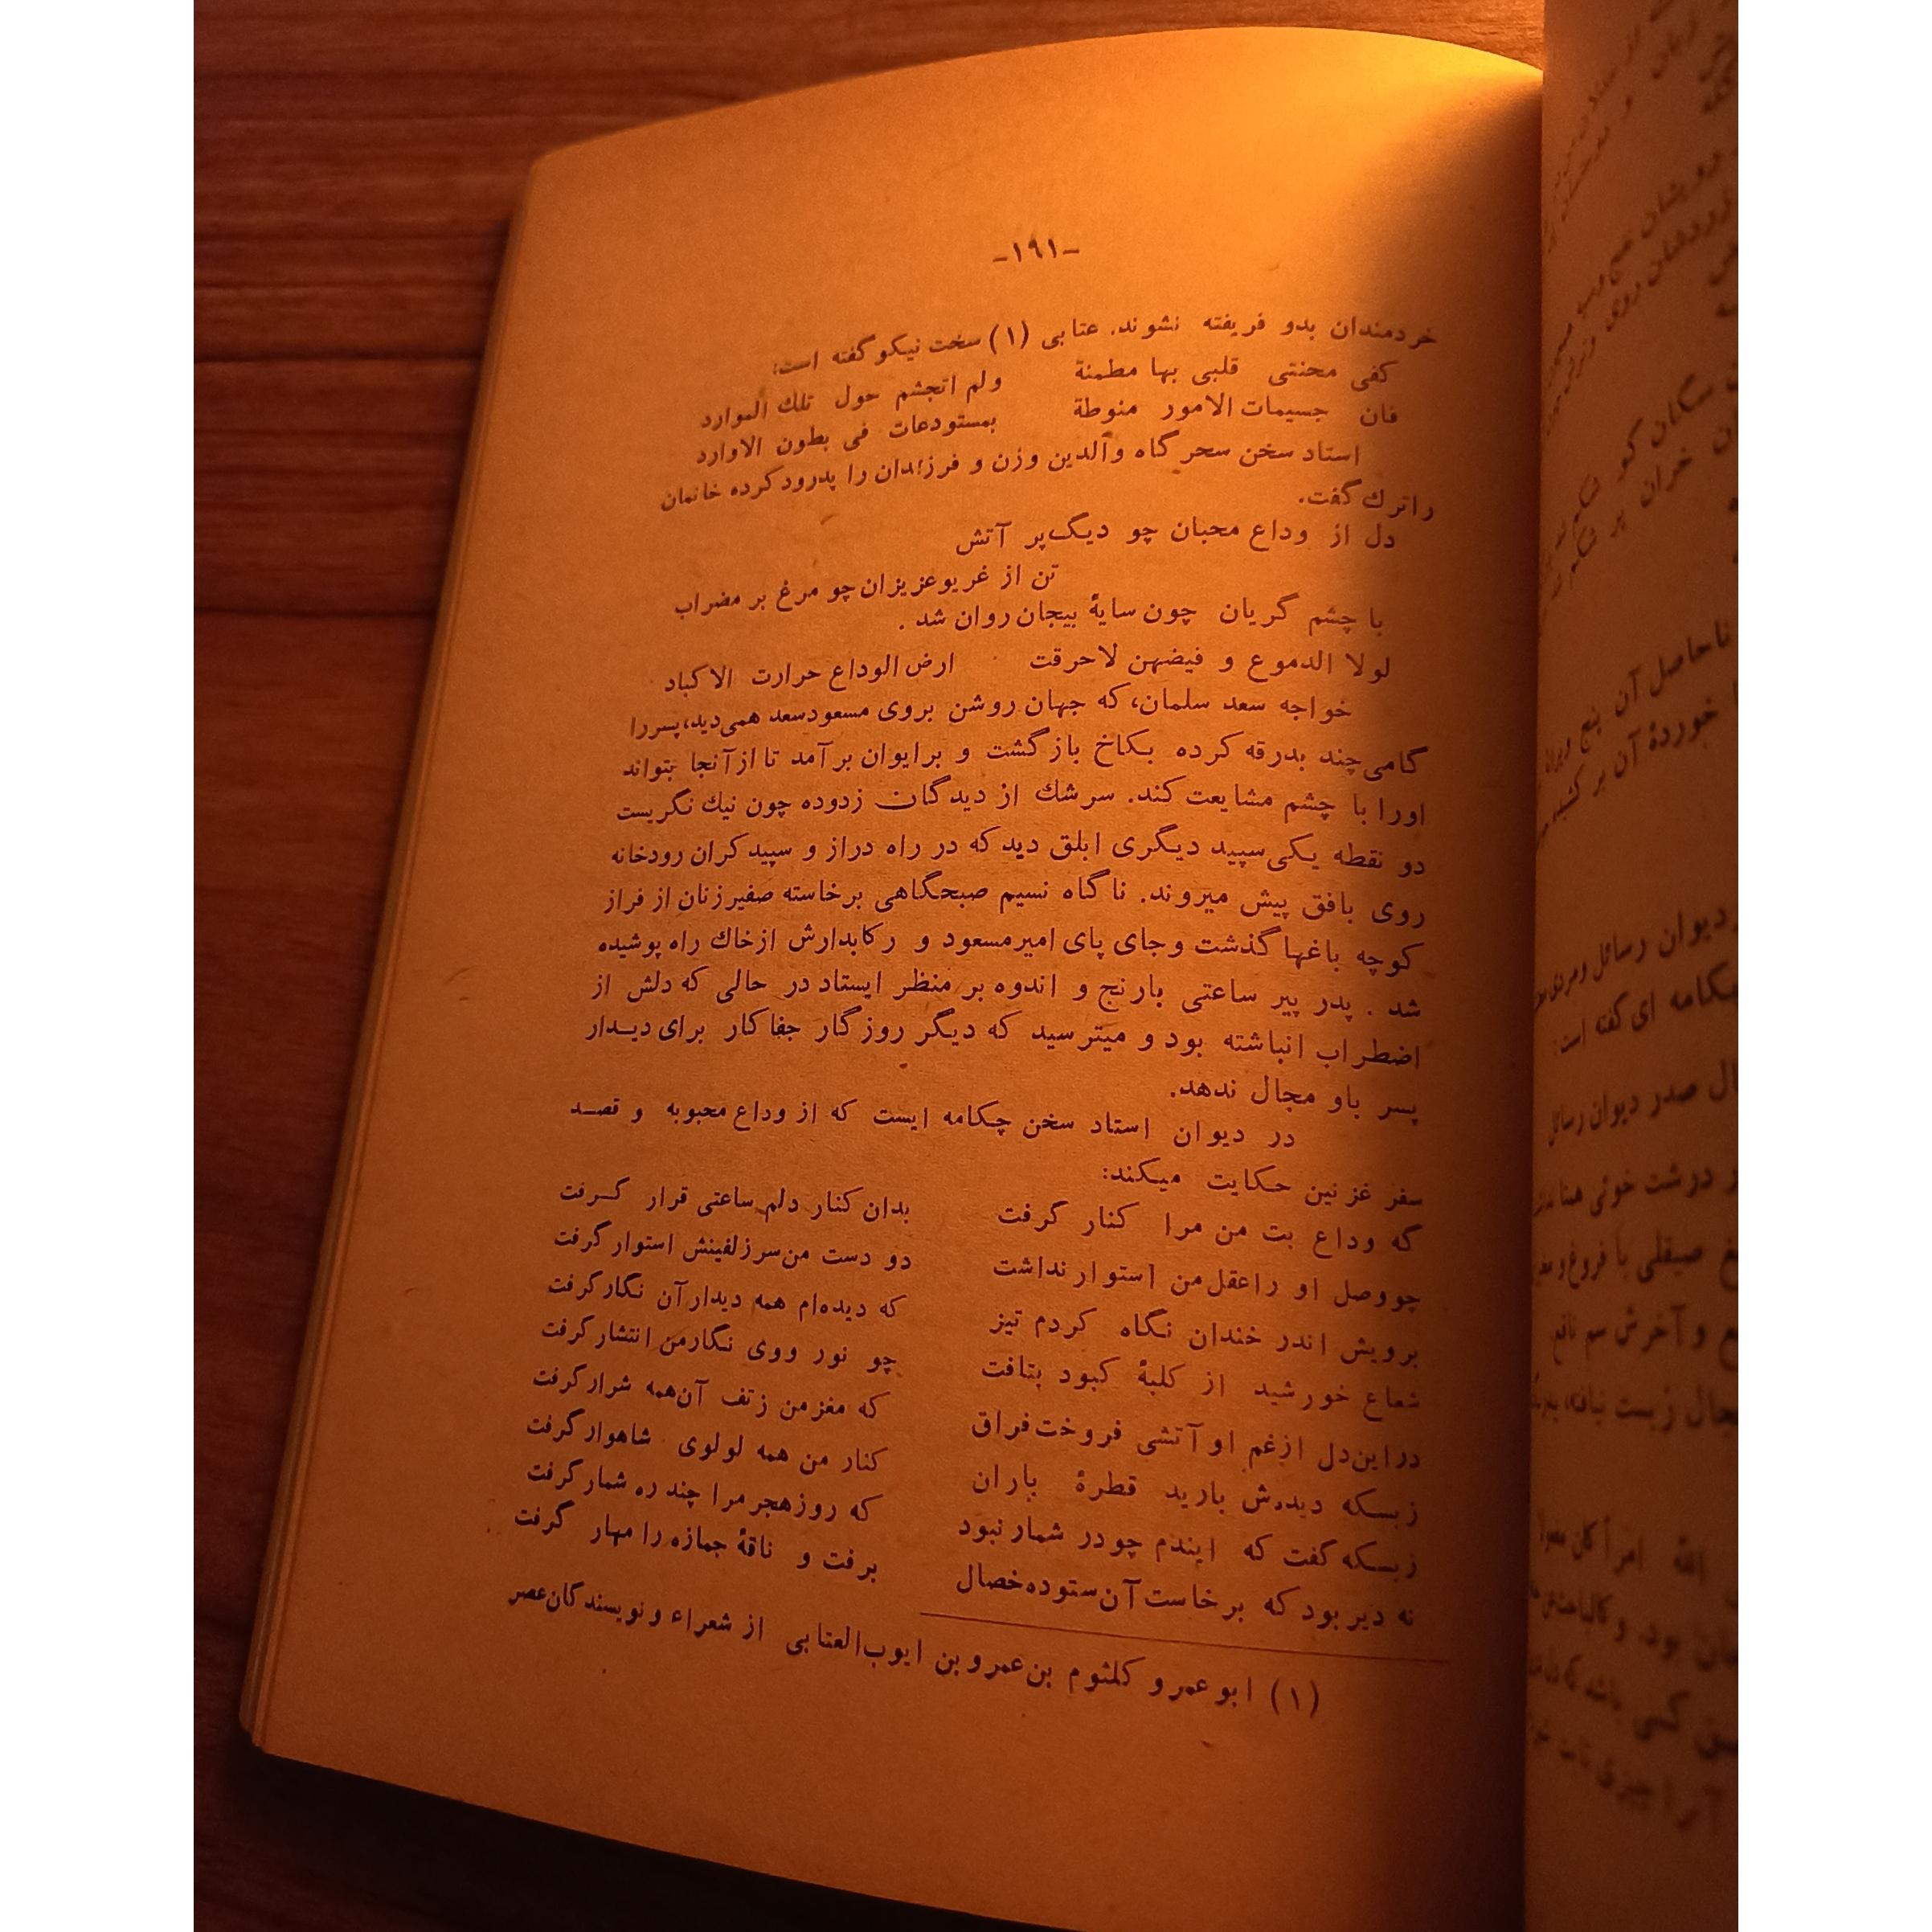 -۱۹۱-
خردمندان بدو فریفته نشوند. عتابی (۱) سخت نیکو گفته است:
کفی محنتی قلبی بها مطمئنة ولم اتجشم حول تلك الموارد
فان جسیمات الامور منوطة بمستودعات فی بطون الاوارد
استاد سخن سحرگاه والدین وزن و فرزندان را پدرود کرده خانمان
راترك گفت.
دل از وداع محبان چو دیگ پر آتش
تن از غریو عزیزان چو مرغ بر مضراب
با چشم گریان چون سایهٔ بیجان روان شد .
لولا الدموع و فیضهن لاحرقت ارض الوداع حرارت الاکباد
خواجه سعد سلمان، که جهان روشن بروی مسعود سعد همی‌دید، پسررا
گامی چند بدرقه کرده بکاخ بازگشت و برایوان برآمد تا از آنجا بتواند
اورا با چشم مشایعت کند. سرشك از دیدگان زدوده چون نیك نگریست
دو نقطه یکی سپید دیگری ابلق دید که در راه دراز و سپید کران رودخانه
روی بافق پیش میروند. ناگاه نسیم صبحگاهی برخاسته صفیر زنان از فراز
کوچه باغها گذشت و جای پای امیر مسعود و رکابدارش از خاك راه پوشیده
شد . پدر پیر ساعتی بارنج و اندوه بر منظر ایستاد در حالی که دلش از
اضطراب انباشته بود و میترسید که دیگر روزگار جفاکار برای دیدار
پسر باو مجال ندهد.
در دیوان استاد سخن چکامه ایست که از وداع محبوبه و قصد
سفر غزنین حکایت میکند:
گه وداع بت من مرا کنار گرفت بدان کنار دلم ساعتی قرار گرفت
چو وصل او را عقل من استوار نداشت دو دست من سر زلفینش استوار گرفت
برویش اندر خندان نگاه کردم تیز که دیده‌ام همه دیدار آن نگار گرفت
شعاع خورشید از کلبهٔ کبود بتافت چو نور ووی نگار من انتشار گرفت
در این دل از غم او آتشی فروخت فراق که مغز من ز تف آن همه شرار گرفت
زبسکه دیده‌ش بارید قطرهٔ باران کنار من همه لولوی شاهوار گرفت
زبسکه گفت که ایندم چو در شمار نبود که روز هجر مرا چند ره شمار گرفت
نه دیر بود که برخاست آن ستوده خصال برفت و ناقهٔ جمازه را مهار گرفت
(۱) ابو عمرو کلثوم بن عمرو بن ایوب العتابی از شعراء و نویسندگان عصر